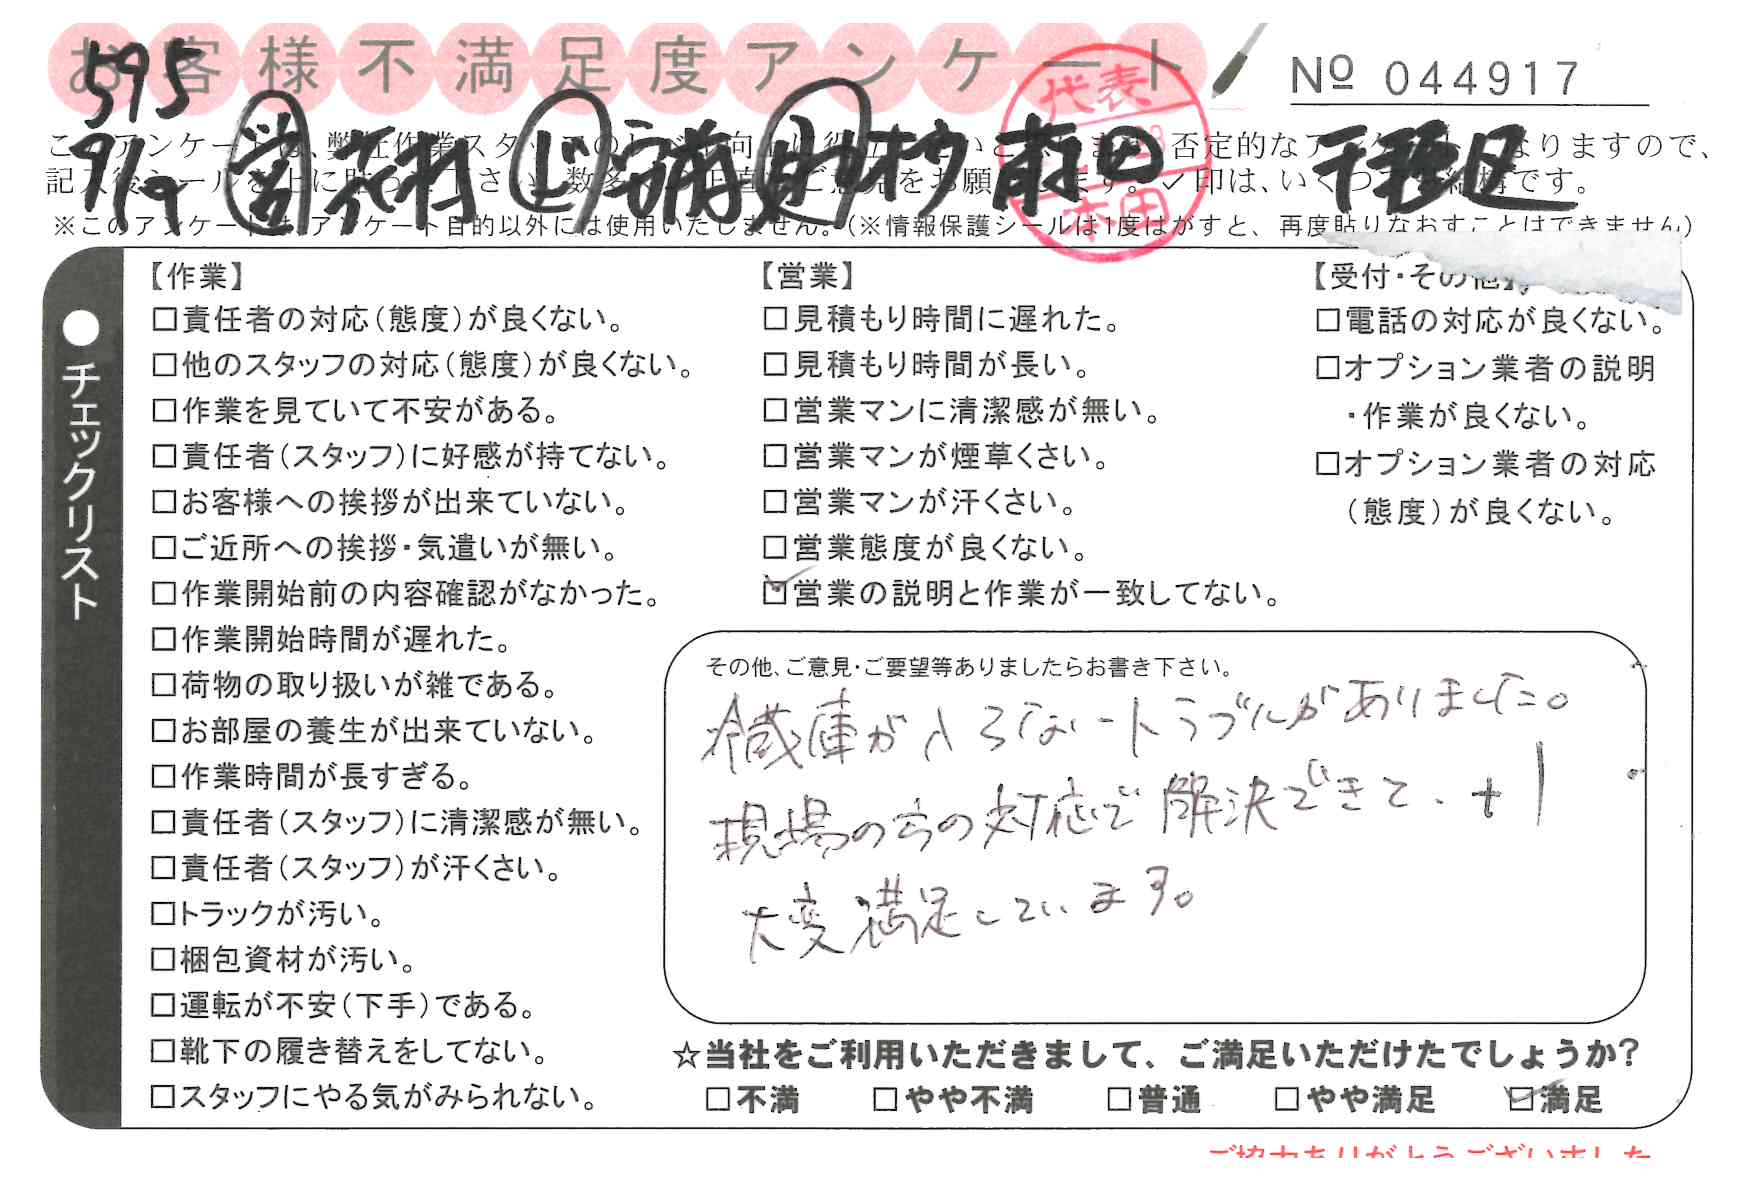 お客様不満足度アンケート
№ 044917
595
9/9
※このアンケートは、アンケート目的以外には使用いたしません。（※情報保護シールは1度はがすと、再度貼りなおすことはできません）
代表
本田
前田
●チェックリスト
【作業】
□責任者の対応（態度）が良くない。
□他のスタッフの対応（態度）が良くない。
□作業を見ていて不安がある。
□責任者（スタッフ）に好感が持てない。
□お客様への挨拶が出来ていない。
□ご近所への挨拶・気遣いが無い。
□作業開始前の内容確認がなかった。
□作業開始時間が遅れた。
□荷物の取り扱いが雑である。
□お部屋の養生が出来ていない。
□作業時間が長すぎる。
□責任者（スタッフ）に清潔感が無い。
□責任者（スタッフ）が汗くさい。
□トラックが汚い。
□梱包資材が汚い。
□運転が不安（下手）である。
□靴下の履き替えをしてない。
□スタッフにやる気がみられない。
【営業】
□見積もり時間に遅れた。
□見積もり時間が長い。
□営業マンに清潔感が無い。
□営業マンが煙草くさい。
□営業マンが汗くさい。
□営業態度が良くない。
☑営業の説明と作業が一致してない。
【受付・その他】
□電話の対応が良くない。
□オプション業者の説明
・作業が良くない。
□オプション業者の対応
（態度）が良くない。
その他、ご意見・ご要望等ありましたらお書き下さい。
冷蔵庫が入らないトラブルがありました。
現場の方の対応で解決できて、
大変満足しています。
☆当社をご利用いただきまして、ご満足いただけたでしょうか？
□不満 □やや不満 □普通 □やや満足 ☑満足
ご協力ありがとうございました